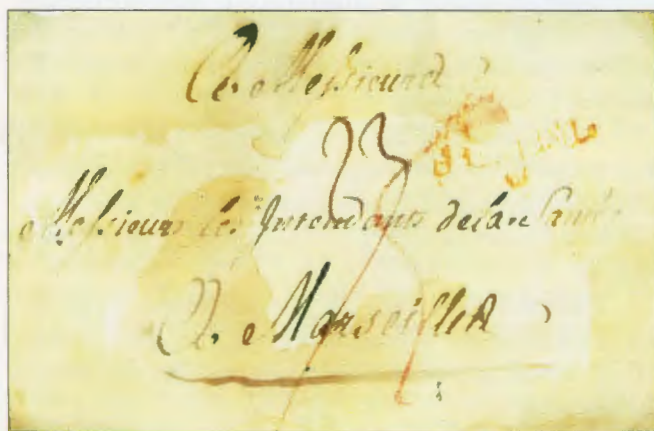 A Messieurs
23
Messieurs les Intendants de la Santé
A Marseille